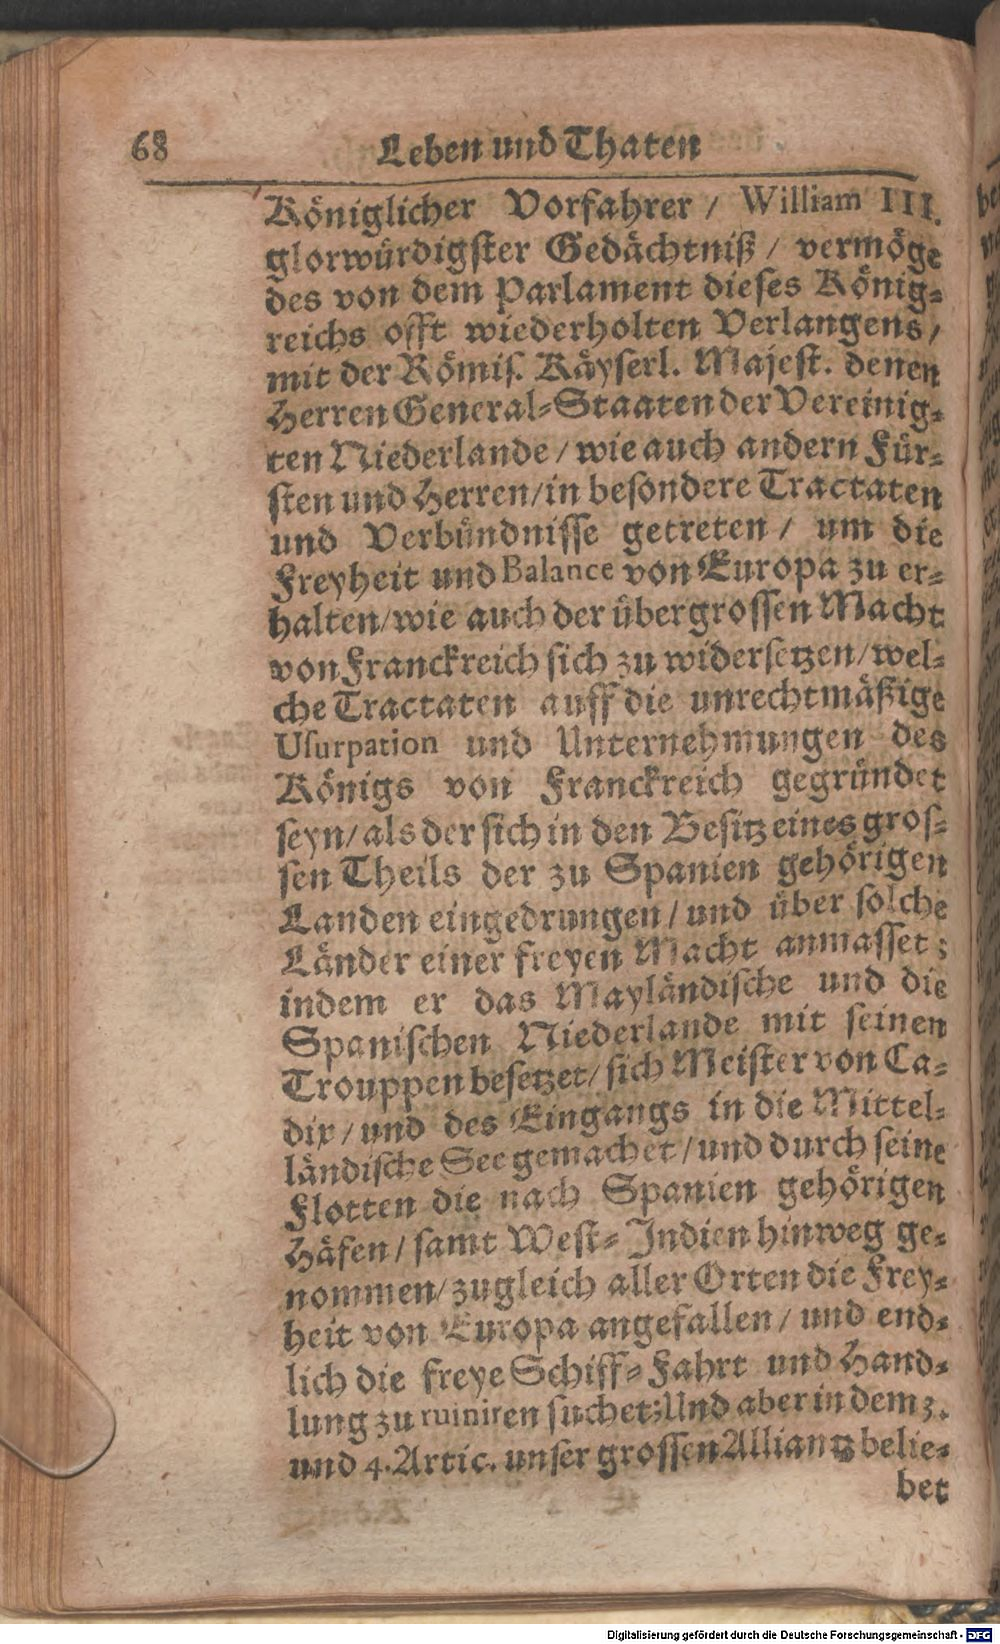 68 Leben und Thaten
Königlicher Vorfahrer / William III.
glorwürdigster Gedächtniß / vermöge
des von dem Parlament dieses König-
reichs offt wiederholten Verlangens /
mit der Römis. Käyserl. Majest. denen
Herren General-Staaten der Vereinig-
ten Niederlande / wie auch andern Für-
sten und Herren / in besondere Tractaten
und Verbündnisse getreten / um die
Freyheit und Balance von Europa zu er-
halten / wie auch der übergrossen Macht
von Franckreich sich zu widersetzen / wel-
che Tractaten auff die unrechtmäßige
Usurpation und Unternehmungen des
Königs von Franckreich gegründet
seyn / als der sich in den Besitz eines gros-
sen Theils der zu Spanien gehörigen
Landen eingedrungen / und über solche
Länder einer freyen Macht anmasset ;
indem er das Mayländische und die
Spanischen Niederlande mit seinen
Trouppen besetzet / sich Meister von Ca-
dix / und des Eingangs in die Mittel-
ländische See gemachet / und durch seine
Flotten die nach Spanien gehörigen
Häfen / samt West-Indien hinweg ge-
nommen / zugleich aller Orten die Frey-
heit von Europa angefallen / und end-
lich die freye Schiff-Fahrt und Hand-
lung zu ruiniren suchet; Und aber in dem 3.
und 4. Artic. unser grossen Alliantz belie-
bet
Digitalisierung gefördert durch die Deutsche Forschungsgemeinschaft - DFG